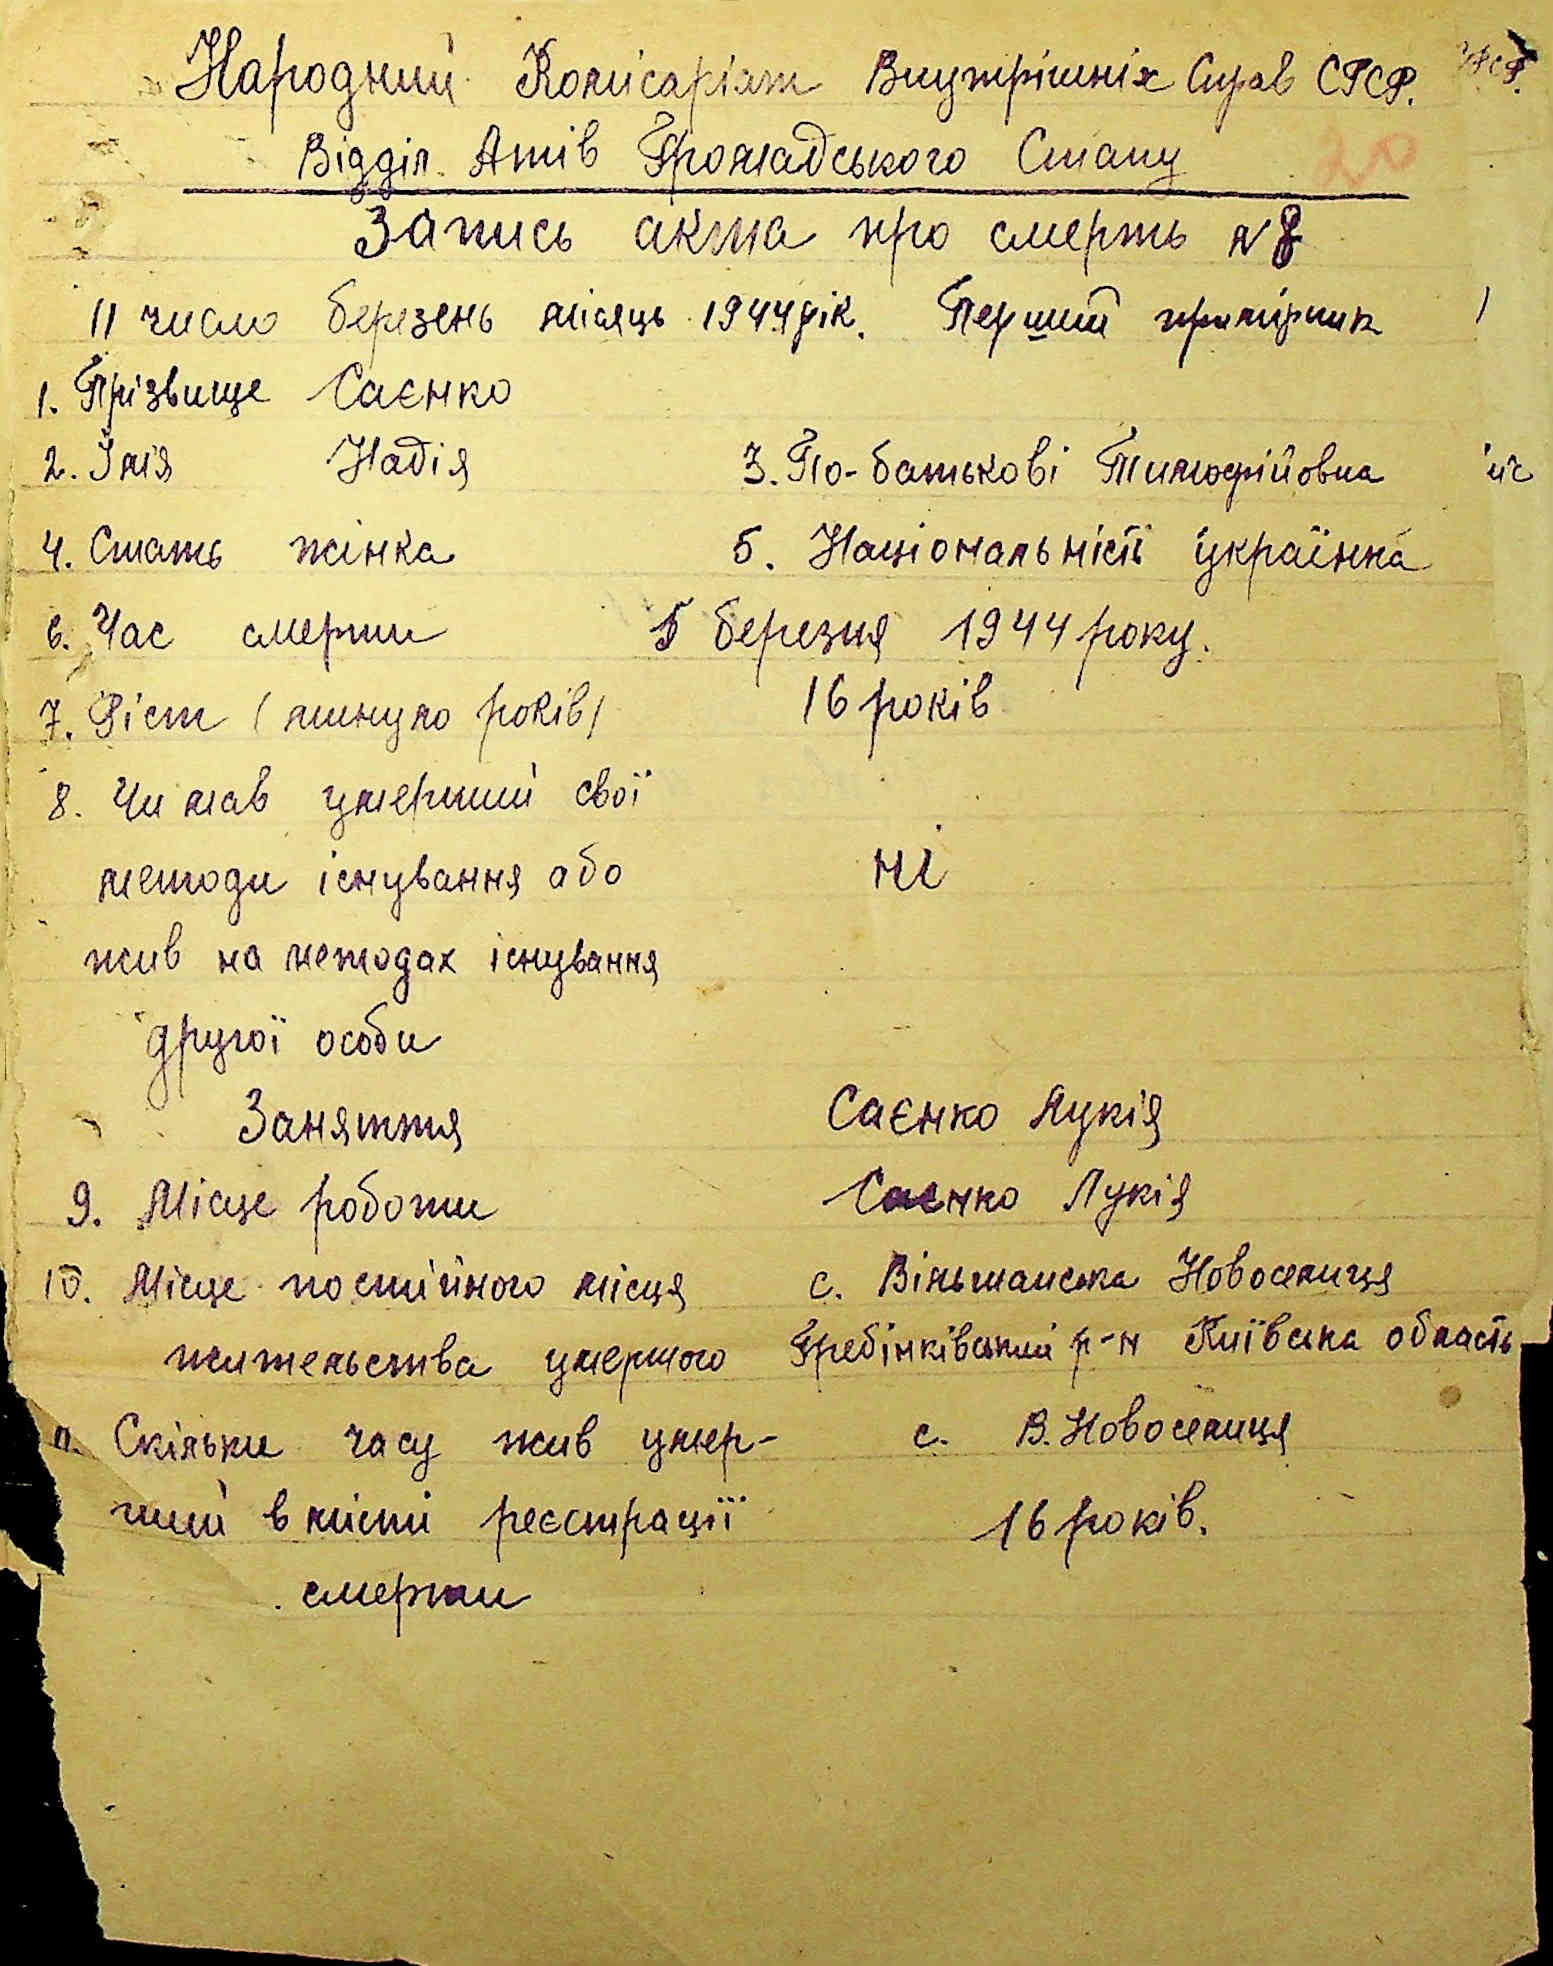 Народний Комісаріат Внутрішніх Справ СРСР.
20
Відділ Атів Громадського Стану
Запись акта про смерть N 8
11 число березень місяць 1944 рік. Перший примірник
1. Прізвище Саєнко
2. Імія Надія 3. По-батькові Тимофійовна
4. Стать жінка 5. Національність українка
6. Час смерти 5 березня 1944 року.
7. Ріст (минуло років) 16 років
8. Чи мав умерший свої
методи існування або ні
жив на методах існування
другої особи
Заняття Саєнко Лукія
9. Місце роботи Саєнко Лукія
10. Місце постійного місця с. Вільшанська Новоселиця
жительства умершого Гребінківський р-н Київська область
11. Скільки часу жив умер- с. В. Новоселиця
ший в місті реєстрації 16 років.
смерти